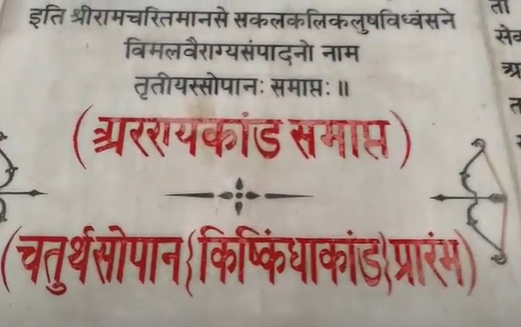 इति श्रीरामचरितमानसे सकलकलिकलुषविध्वंसने
विमलवैराग्यसंपादनो नाम
तृतीयस्सोपानः समाप्तः ॥
(अररायकांड समाप्त)
(चतुर्थसोपान{किष्किंधाकांड}प्रारंभ)